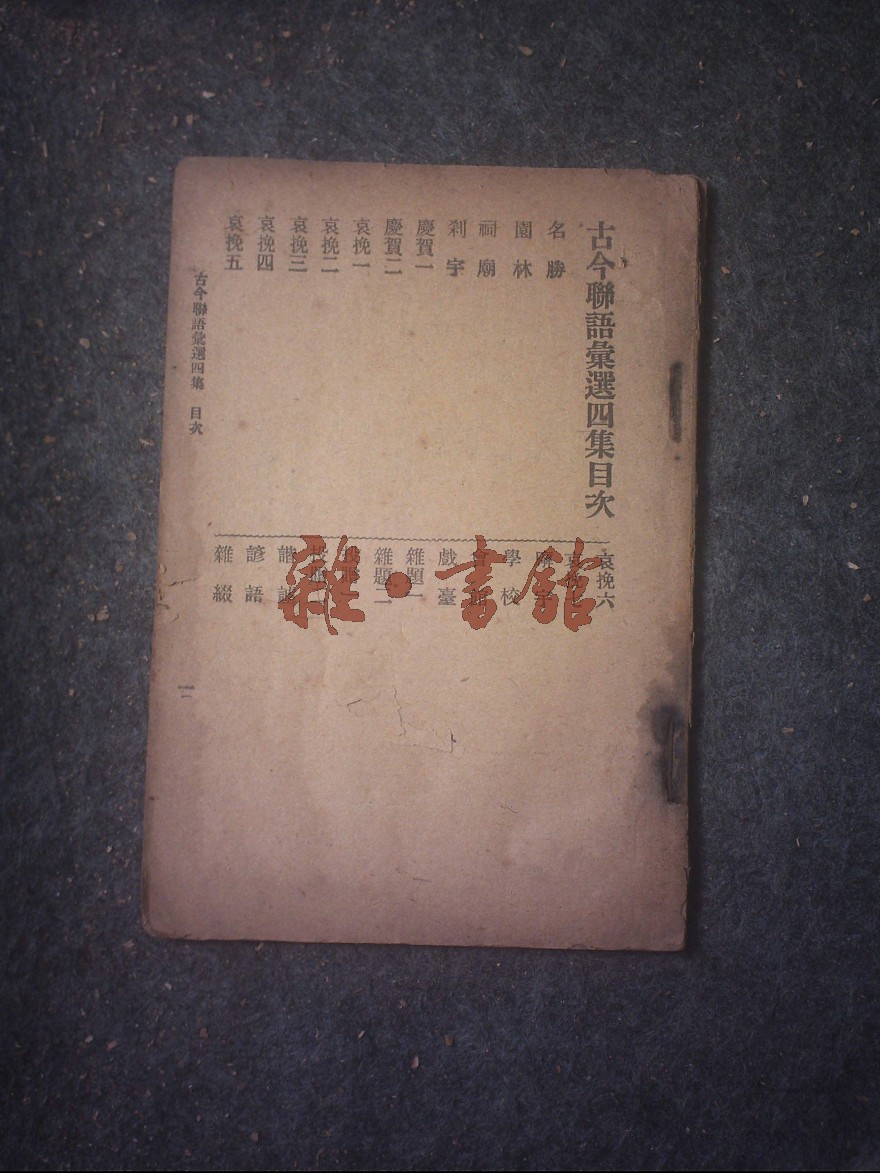 古今聯語彙選四集目次
名勝
園林
祠廟
刹宇
慶賀一
慶賀二
哀挽一
哀挽二
哀挽三
哀挽四
哀挽五
哀挽六
哀挽
學校
戲臺
雜題一
雜題二
諧
諺語
雜綴
古今聯語彙選四集 目次
一
雜·書館